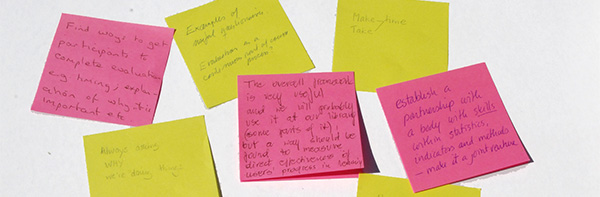 Find ways to get
participants to
complete evaluation
eg timing, expla-
nation of why this
important etc
Examples of
useful questionnaires.
Evaluation is a
continuous part of
process?
Make-time
Take
The overall framework
is very useful
and we will probably
use it at our library
(some parts of it),
but a way should be
found to measure
direct effectiveness of
users' progress in
establish a
partnership with
a body with skills
within statistics,
indicators and methods
- make it a joint venture
Always saying
why
we're doing this?